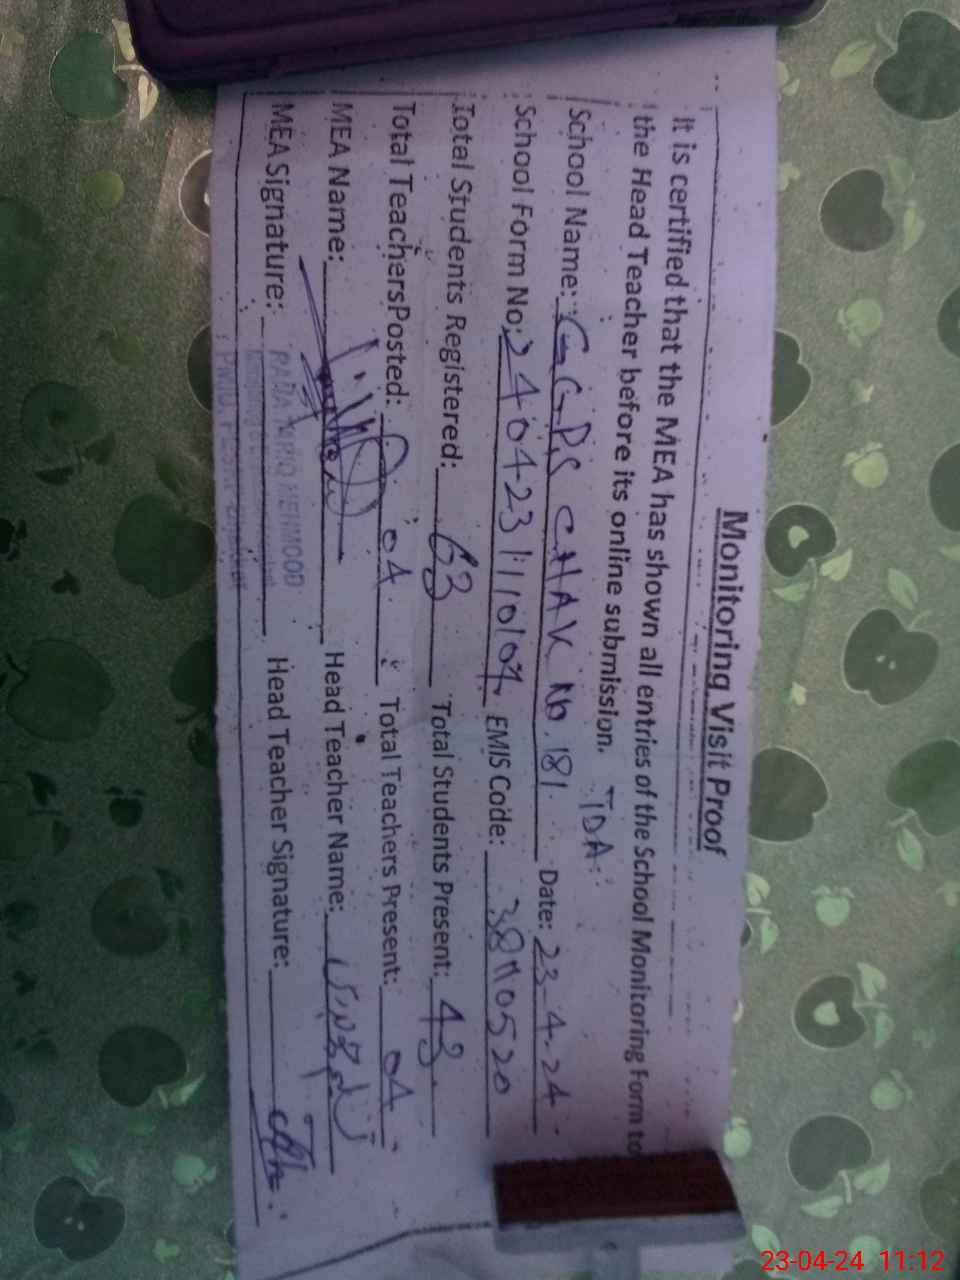 Monitoring Visit Proof
It is certified that the MEA has shown all entries of the School Monitoring Form to
the Head Teacher before its online submission.
TDA
School Name: G.G.P.S CHAK No. 181 Date: 23-4-24
School Form No: EMIS Code: 38110520
Total Students Registered: 63 Total Students Present: 43
Total Teachers Posted: 04 Total Teachers Present: 04
MEA Name: Head Teacher Name:
MEA Signature: MEHMOOD Head Teacher Signature:
23-04-24 11:12